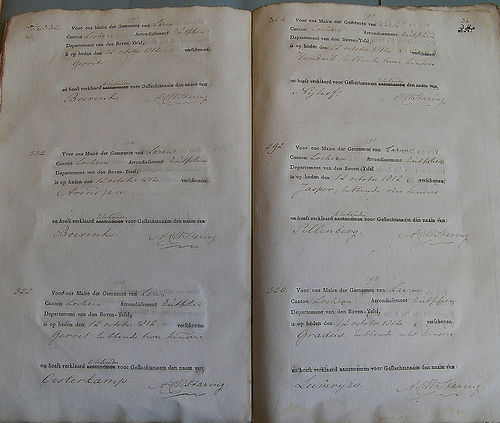 Voor ons Maire der Gemeente van Laren
Canton Lochem Arrondissement Zutphen
Departement van den Boven-Yssel,
is op heden den 12 october 1812 verschenen
Gerrit
en heeft verklaard aantenemen voor Geslachtsnaam den naam van
Boerink
332.
Voor ons Maire der Gemeente van Laren
Canton Lochem Arrondissement Zutphen
Departement van den Boven-Yssel,
is op heden den 12 october 1812 verschenen
Arend Jan
en heeft verklaard aantenemen voor Geslachtsnaam den naam van
Boerink
Voor ons Maire der Gemeente van Laren
Canton Lochem Arrondissement Zutphen
Departement van den Boven-Yssel,
is op heden den 12 october 1812 verschenen
Gerrit hebbende twee kinders
en heeft verklaard aantenemen voor Geslachtsnaam den naam van
Oosterkamp.
Voor ons Maire der Gemeente van Laren
Canton Lochem Arrondissement Zutphen
Departement van den Boven-Yssel,
is op heden den 12 october 1812 verschenen
hebbende twee kinders
en heeft verklaard aantenemen voor Geslachtsnaam den naam van
Nijhof
292.
Voor ons Maire der Gemeente van Laren
Canton Lochem Arrondissement Zutphen
Departement van den Boven-Yssel,
is op heden den 12 october 1812 verschenen
Jasper hebbende vier kinders
en heeft verklaard aantenemen voor Geslachtsnaam den naam van
Pellenberg.
320.
Voor ons Maire der Gemeente van Laren
Canton Lochem Arrondissement Zutphen
Departement van den Boven-Yssel,
is op heden den 12 october 1812 verschenen
Gradus hebbende acht kinders
en heeft verklaard aantenemen voor Geslachtsnaam den naam van